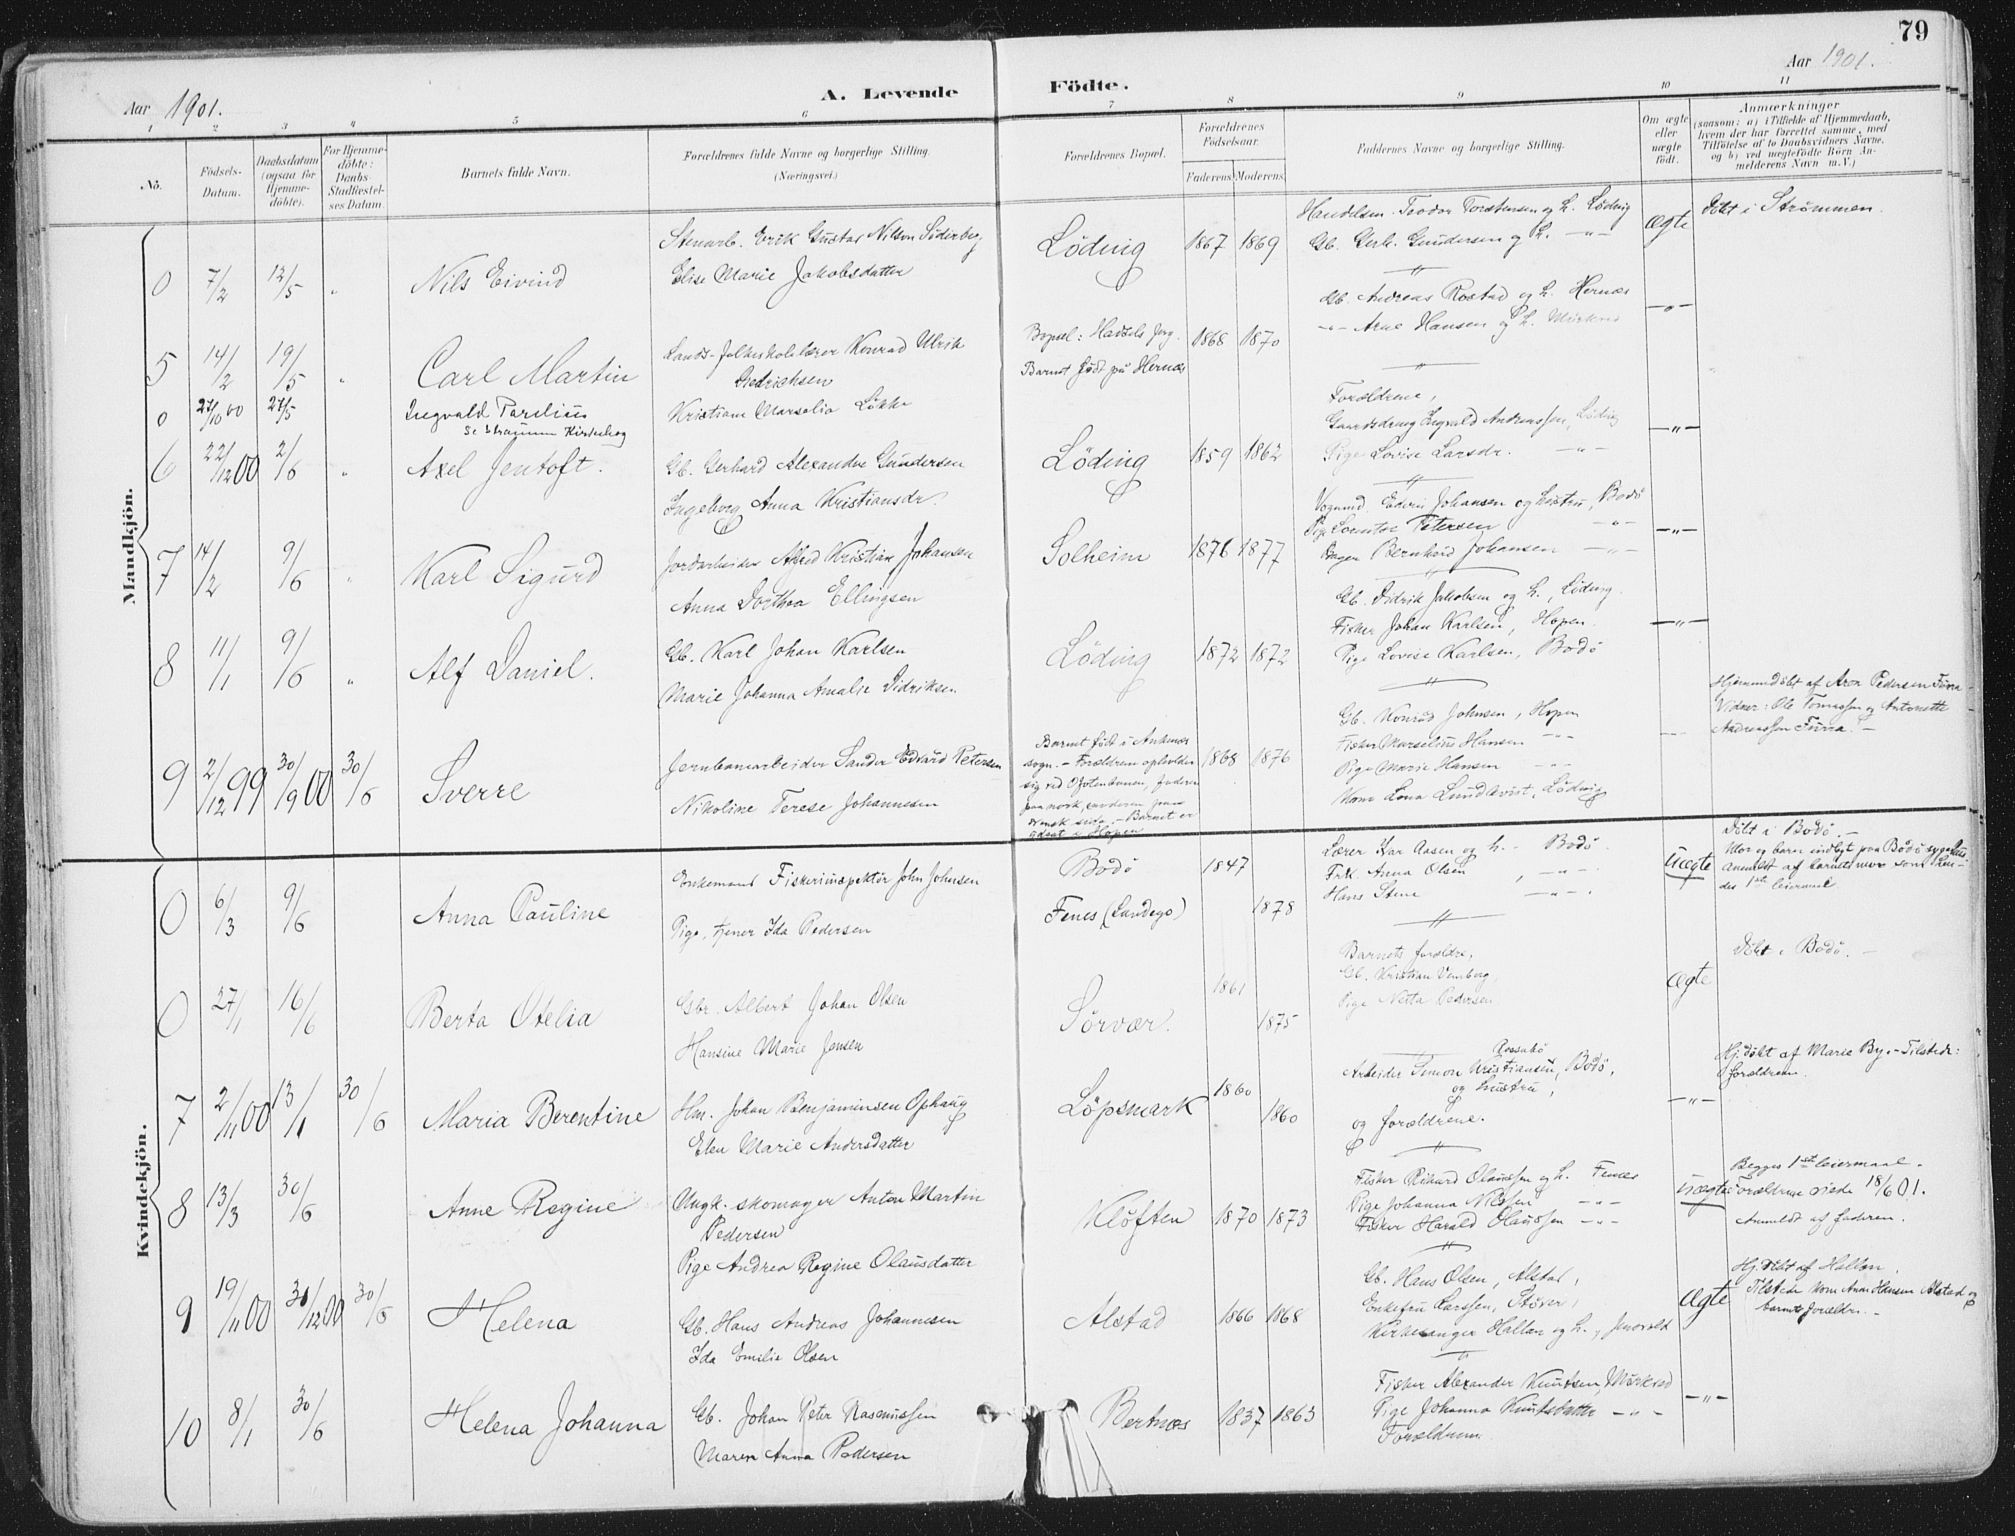 79
Aar 1901.
A. Levende Födte.
Aar 1901.
1 2 3 4 5 6 7 8 9 10 11
No.
Födsels-
Datum.
Daabsdatum
(ogsaa for
Hjemme-
döbte).
For Hjemme-
döbte:
Daabs-
Stadfæstel-
ses Datum.
Barnets fulde Navn.
Forældrenes fulde Navne og borgerlige Stilling.
(Næringsvei.)
Forældrenes Bopæl.
Forældrenes
Födselsaar.
Faderens. Moderens.
Faddernes Navne og borgerlige Stilling.
Om ægte
eller
uægte
födt.
Anmærkninger
(saasom: a) i Tilfælde af Hjemmedaab,
hvem der har forrettet samme, med
Tilföielse af to Daabsvidners Navne,
og b) ved uægtefödte Börn An-
melderens Navn m. V.)
Mandkjön.
0 7/2 12/5 "
Nils Eivind
Stenarb. Erik Gustav Nilson Söderberg
Elise Marie Jakobsdatter
Löding 1867 1869
Handelsm. Teodor Torstensen og h. Löding
Gb. Gerh. Gundersen og h. -"-
ægte
döbt i Strømmen.
5 14/2 19/5 "
Carl Martin
Lands-folkeskolelærer Konrad Ulrik
Diedrichsen
Kristiane Marselia Løkke
Bopæl: Hadsels prg.
Barnet født på Hernæs
1868 1870
Gb. Andreas Rostad og h. Hernæs
-"- Arne Hansen og h. Mørkved
-"-
0 27/10 00 27/5
Ingvald Parelius
se Strømmen Kirkebog
6 22/12 00 2/6 "
Axel Jentoft.
Gb. Gerhard Alexander Gundersen
Ingeborg Anna Kristiansdr.
Löding 1859 1862
Forældrene,
Gaardsdreng Ingvald Andreassen, Löding
Pige Lovise Larsdr. -"-
-"-
7 14/2 9/6 "
Karl Sigurd
Jordarbeider Alfred Kristian Johansen
Anna Dorthea Ellingsen
Solheim 1876 1877
Vognmd. Edvin Johansen og hustru, Bodö
Pige Petersen -"-
Bernhard Johansen -"-
-"-
8 11/1 9/6 "
Alf Daniel.
Gb. Karl Johan Karlsen
Marie Johanna Amalie Didriksen
Löding 1872 1872
Gb. Didrik Jakobsen og h., Löding.
Fisker Johan Karlsen, Hopen.
Pige Lovise Karlsen, Bodö
-"-
9 2/12 99 30/9 00 30/6
Sverre
Jernbanearbeider Sander Edvard Petersen
Nikoline Terese Johannesen
Barnet født i Ankenæs
sogn. - Forældrene opholder
sig ved Ofotenbanen, faderen
paa norsk, moderen paa
svensk side. - Barnet er
i Hopen
1868 1876
Gb. Konrad Johnsen, Hopen
Fisker Marselius Hansen -"-
Pige Marie Hansen -"-
Kone Lona Lundkvist, Löding
Hjemmedöbt af Aron Pedersen Furra
Vidner: Ole Tomassen og Antonette
Andreassen Furra. -
Kvindekjön.
0 6/3 9/6
Anna Pauline
Enkemand Fiskeriinspektör John Johnsen
Pige, tjener Ida Pedersen
Bodö 1847
Fenes (Landego) 1878
Lærer Ivar Aasen og h. - Bodö.
Frk. Anna Olsen, -"-
Hans Stene -"-
uægte
Döbt i Bodö. -
Mor og barn indlagt paa Bodö sygehus
Anmeldt af barnets mor som hen-
des 1ste leiermaal
0 27/1 16/6
Berta Otelia
Gbr. Albert Johan Olsen
Hansine Marie Jensen
Sörvær. 1861 1875
Barnets forældre,
Gb. Kristian Vemberg,
Pige Netta Pedersen
ægte
Döbt i Bodö. -
7 2/11 00 13/1 30/6
Maria Berentine
Hm. Johan Benjaminsen Ophaug
Elen Marie Andersdatter
Löpsmark 1860 1860
Arbeider Simon Kristiansen, Bodö,
og hustru,
og forældrene.
-"-
Hj.döbt af Marie By. - Tilstede:
forældrene.
8 13/3 30/6
Anne Regine
Ungk. skomager Anton Martin
Pedersen
Pige Andrea Regine Olausdatter
Klöften 1870 1873
Fisker Rikard Olaussen og h. Fenes
Pige Johanna Nilssen -"-
Fisker Harald Olaussen -"-
uægte
Begges 1ste leiermaal.
Forældrene viede 18/6 01.
Anmeldt af faderen.
9 19/11 00 30/12 00 30/6
Helena
Gb. Hans Andreas Johannesen
Ida Emilie Olsen
Alstad 1866 1868
Gb. Hans Olsen, Alstad,
Enkefru Larssen, Støver,
Kirkesanger Hallan og h.,
ægte
Hj.döbt af Hallan.
Tilstede kone Anne Hansen Alstad og
barnets forældre. -
10 8/1 30/6
Helena Johanna
Gb. Johan Peter Rasmussen
Maren Anna Pedersen
Bertnæs 1837 1863
Fisker Alexander Knutsen, Mörkved
Pige Johanna Knutsdatter -"-
Forældrene.
-"-